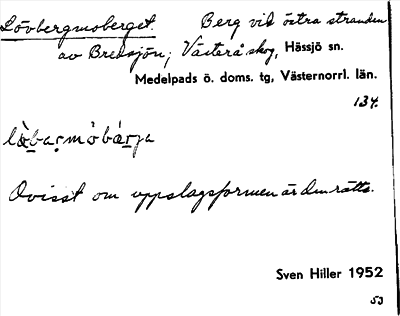 Lövbergmoberget. Berg vid östra stranden
av Bredsjön; Västerå skog, Hässjö sn.
Medelpads ö. doms. tg, Västernorrl. län.
134.
Ovisst om uppslagsformen är den rätta.
Sven Hiller 1952
53